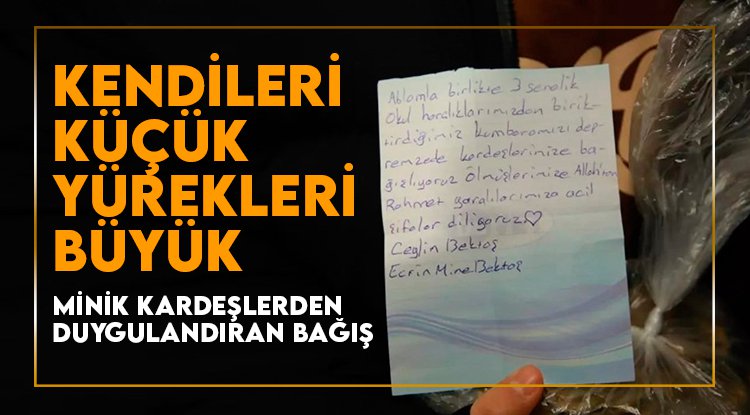 KENDİLERİ
KÜÇÜK
YÜREKLERİ
BÜYÜK
MİNİK KARDEŞLERDEN
DUYGULANDIRAN BAĞIŞ
Ablamla birlikte 3 senelik
Okul harçlıklarımızdan birik-
tirdiğimiz kumbaramızı dep-
remzede kardeşlerinize ba-
ğışlıyoruz Ölmüşlerimize Allah'tan
Rahmet yaralılarımıza acil
şifalar diliyoruz♡
Ceylin Bektaş
Ecrin Mine Bektaş